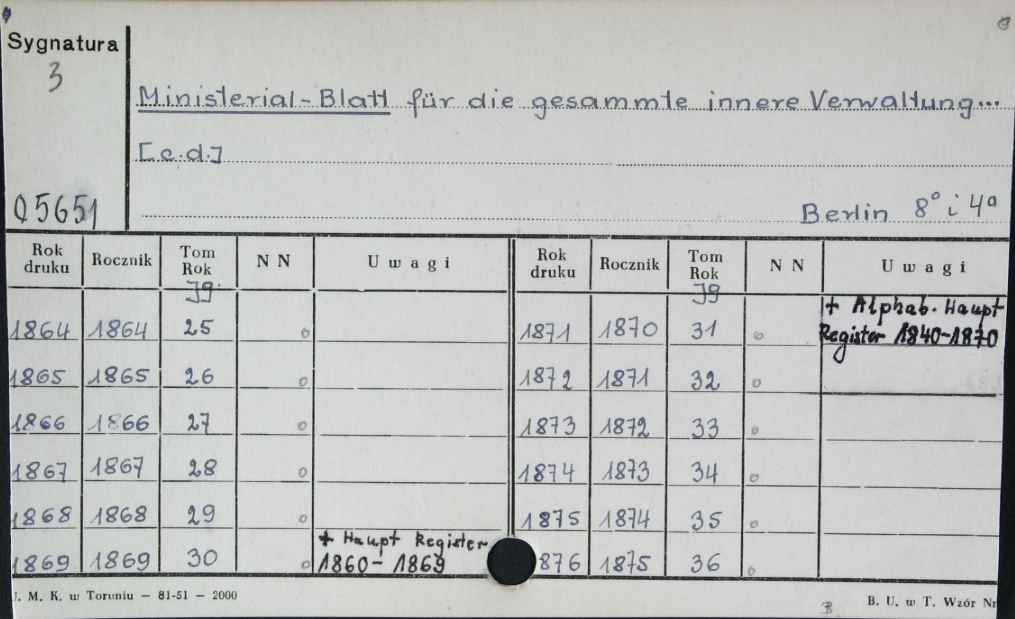 Sygnatura
3
Ministerial-Blatt für die gesammte innere Verwaltung...
[c.d.]
05651
Berlin 8° i 4°
Rok druku Rocznik Tom Rok NN Uwagi Rok druku Rocznik Tom Rok NN Uwagi
Jg. Jg
1864 1864 25 1871 1870 31 + Alphab. Haupt Register 1840-1870
1865 1865 26 1872 1871 32
1866 1866 27 1873 1872 33
1867 1867 28 1874 1873 34
1868 1868 29 1875 1874 35
1869 1869 30 + Haupt Register 1860-1869 876 1875 36
U. M. K. w Toruniu — 81-51 — 2000
B. U. w T. Wzór Nr